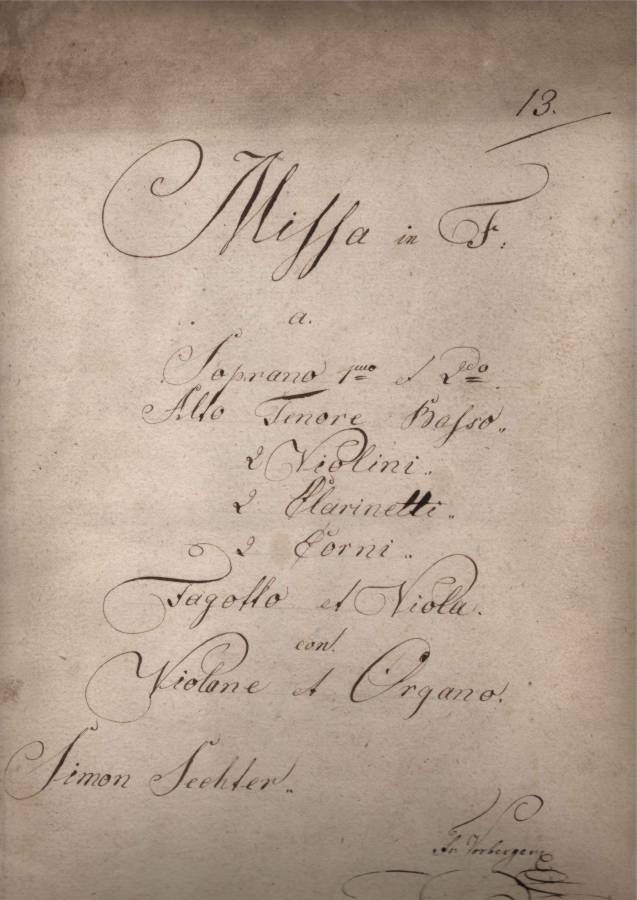 13.
Missa in F.
a.
Soprano 1mo et 2do.
Alto Tenore Basso.
2 Violini.
2 Clarinetti.
2 Corni.
Fagotto et Viola.
con
Violone et Organo.
Simon Sechter.